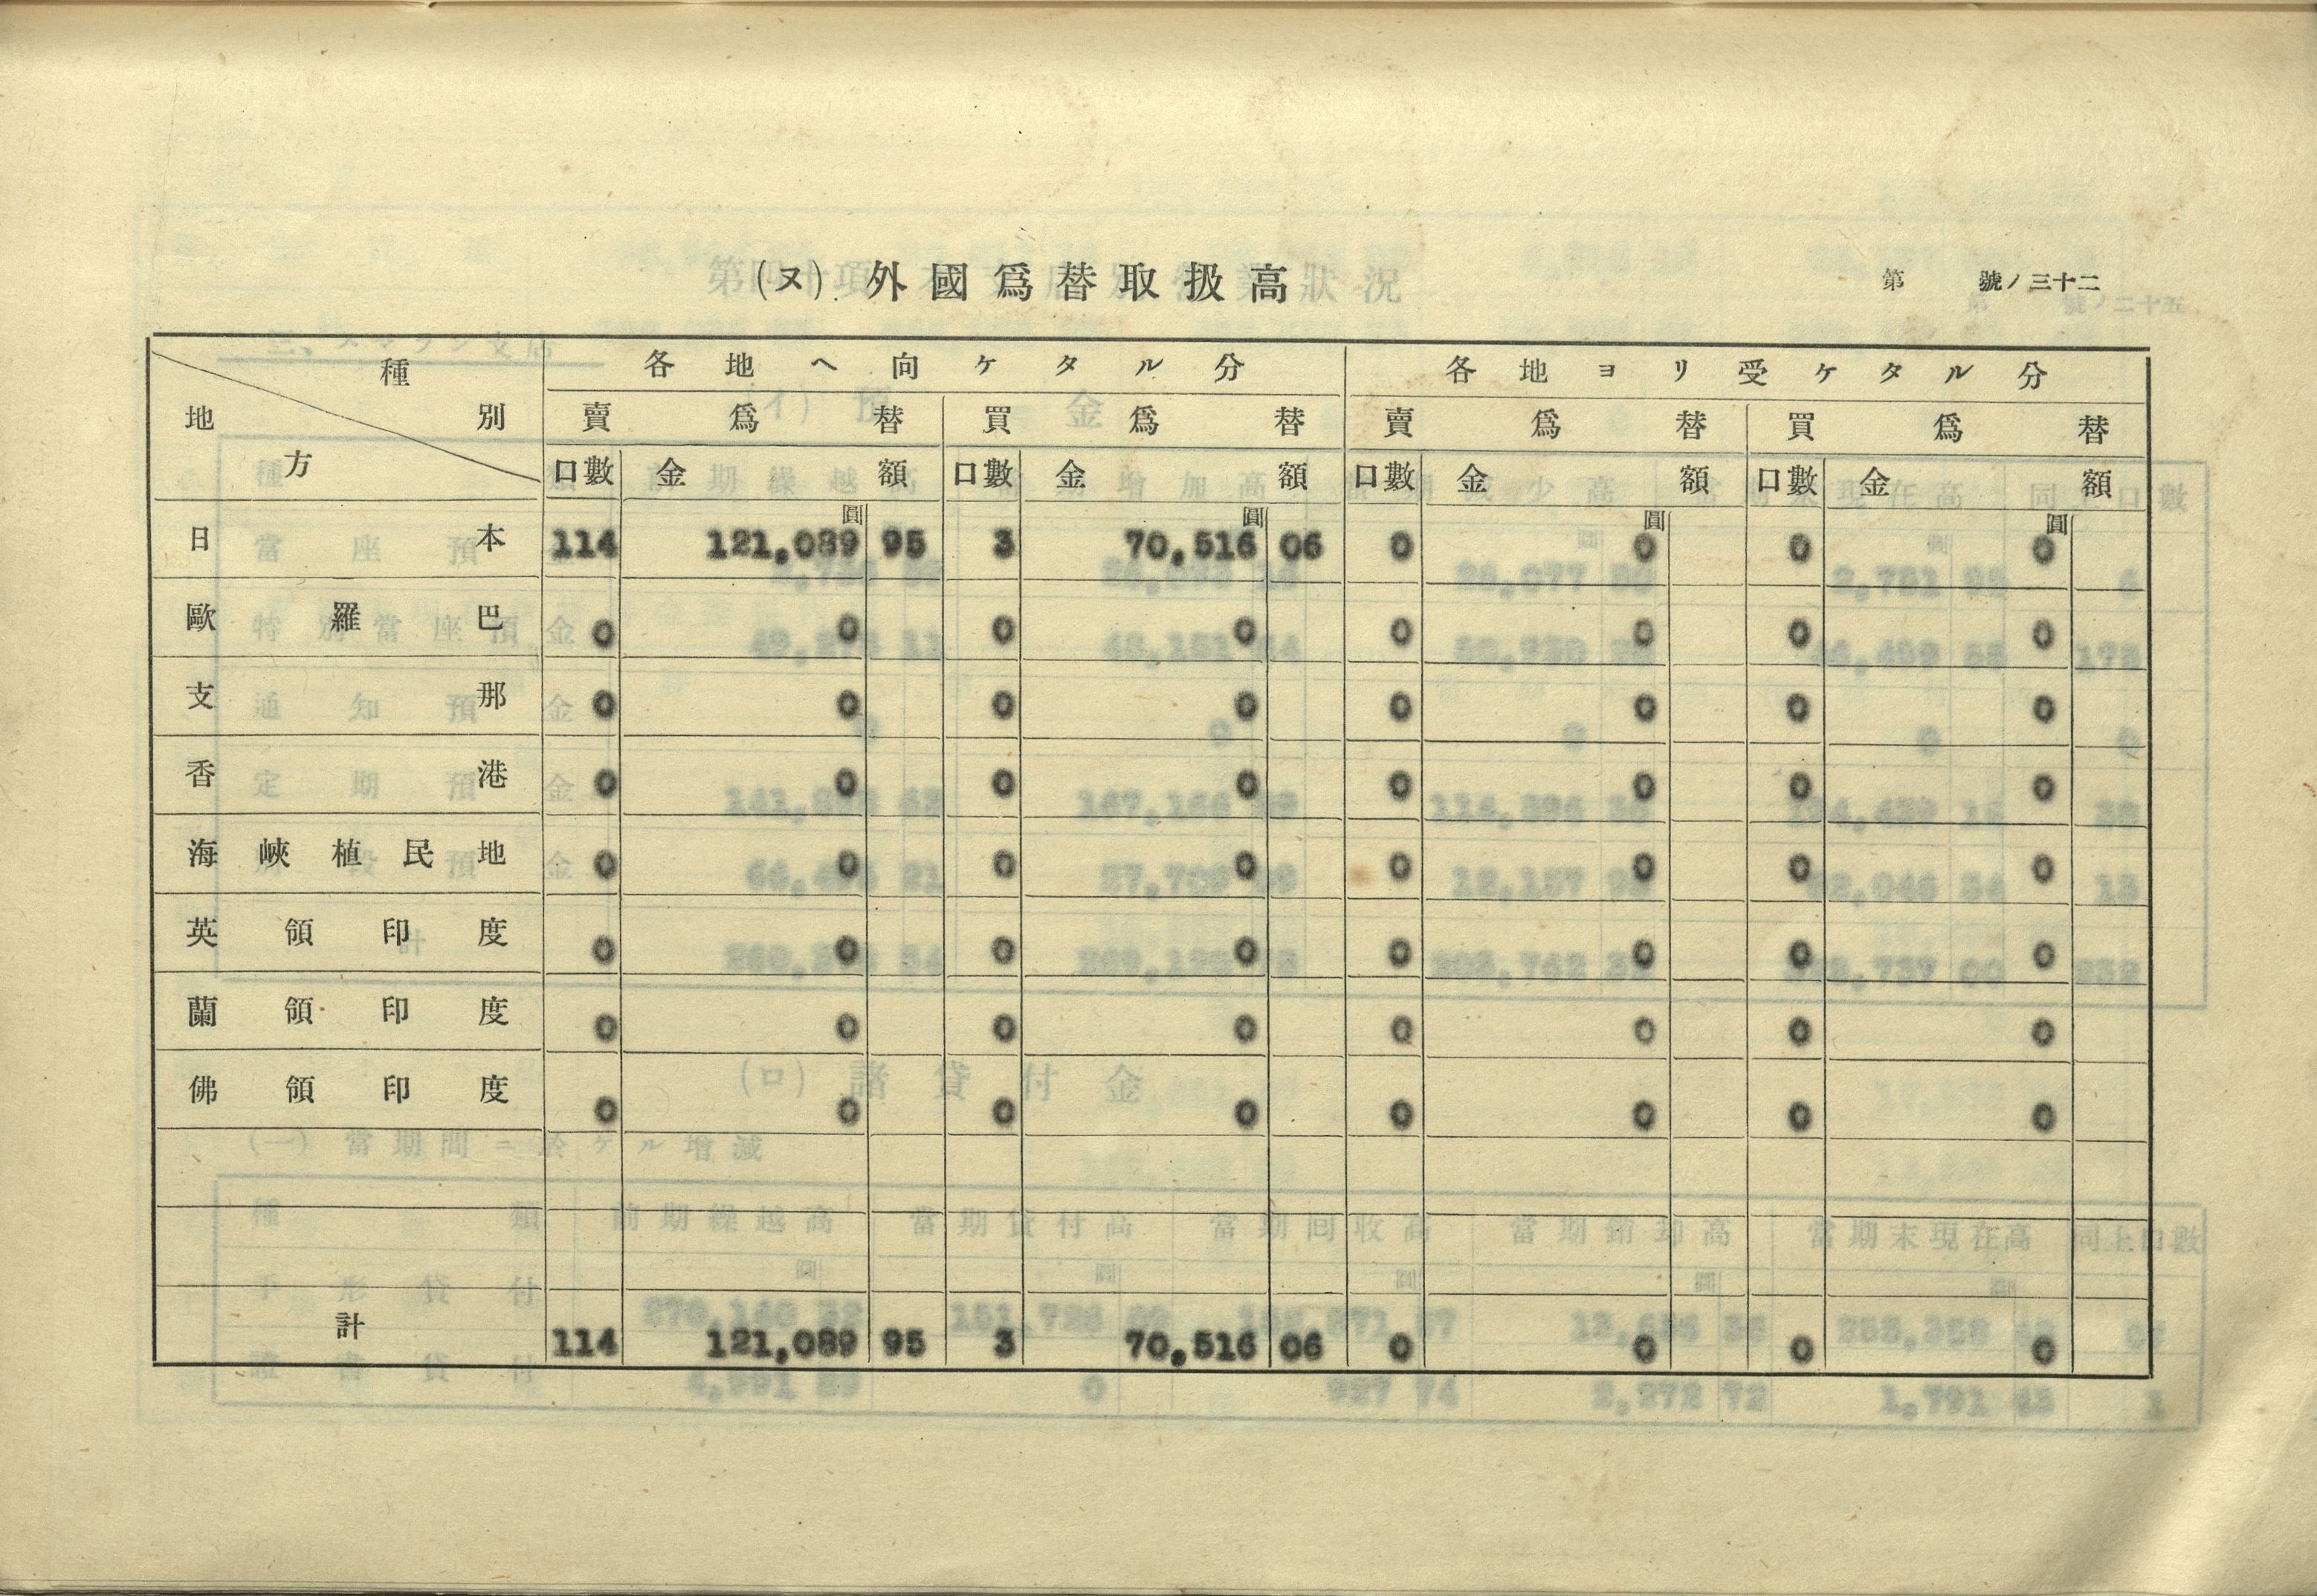 (ヌ) 外國爲替取扱高
第 號ノ三十二
種別 地方 各地ヘ向ケタル分 各地ヨリ受ケタル分
賣爲替 買爲替 賣爲替 買爲替
口數 金額 口數 金額 口數 金額 口數 金額
圓 圓 圓 圓
日本 114 121,089 95 3 70,516 06 0 0 0 0
歐羅巴 0 0 0 0 0 0 0 0
支那 0 0 0 0 0 0 0 0
香港 0 0 0 0 0 0 0 0
海峽植民地 0 0 0 0 0 0 0 0
英領印度 0 0 0 0 0 0 0 0
蘭領印度 0 0 0 0 0 0 0 0
佛領印度 0 0 0 0 0 0 0 0
計 114 121,089 95 3 70,516 06 0 0 0 0